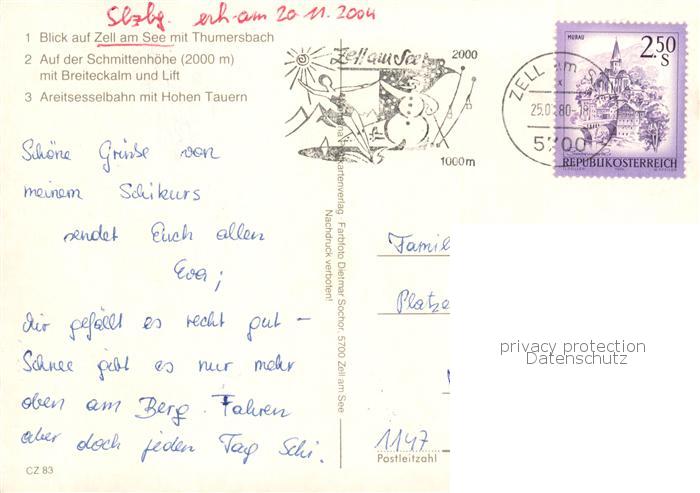 Slzbg. erh. am 20.11.2004
1 Blick auf Zell am See mit Thumersbach
2 Auf der Schmittenhöhe (2000 m)
mit Breiteckalm und Lift
3 Areitsesselbahn mit Hohen Tauern
Zell am See
2000
1000 m
ZELL am
5700
MURAU
2.50
S
REPUBLIK ÖSTERREICH
Schöne Grüße von
meinem Schikurs
sendet Euch allen
Eva;
mir gefällt es recht gut –
Schnee gibt es nur mehr
oben am Berg. Fahren
aber doch jeden Tag Schi.
CZ 83
kartenverlag Farbfoto Dietmar Sochor, 5700 Zell am See
Nachdruck verboten!
Famil
Platze
1147
Postleitzahl
privacy protection
Datenschutz